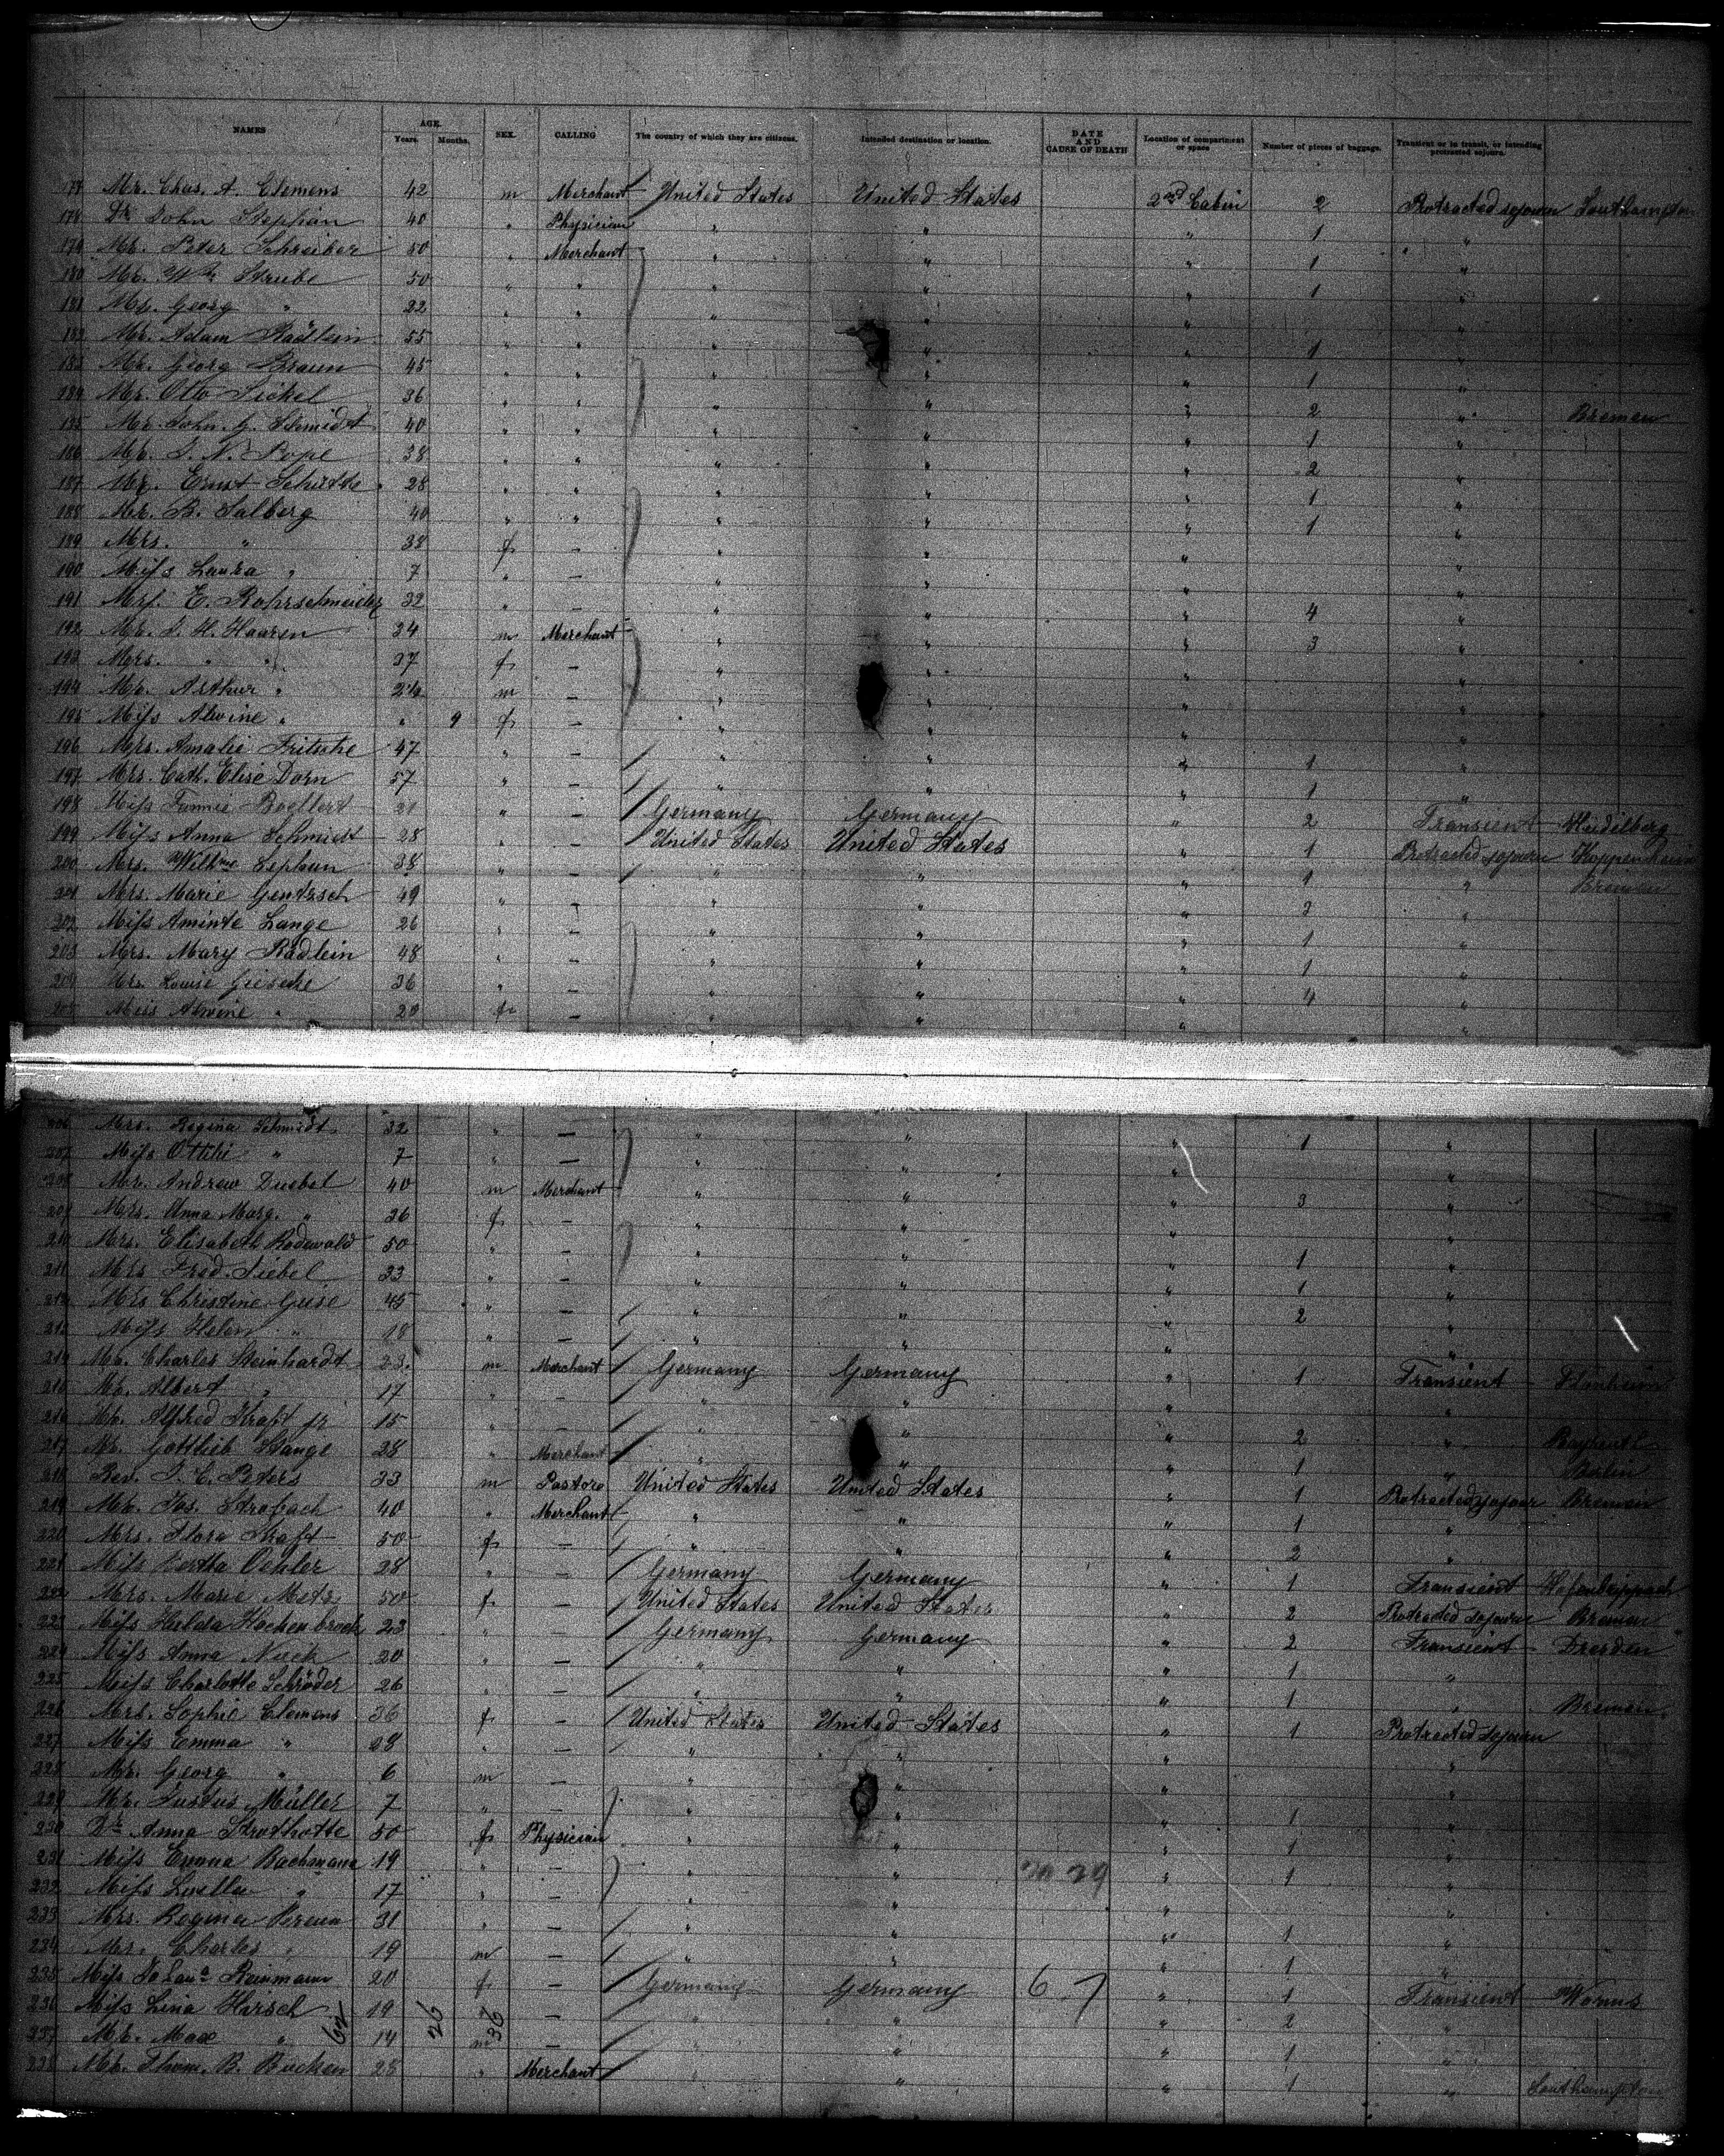 NAMES AGE. Years. Months. SEX. CALLING The country of which they are citizens. Intended destination or location. DATE AND CAUSE OF DEATH Location of compartment or space Number of pieces of baggage. Transient or in transit, or intending protracted sojourn.
177 Mr. Chas. A. Clemens 42 m Merchant United States United States 2nd Cabin 2 Protracted sojourn Southampton
178 Dr. John Stephan 40 " Physician " " " 1 "
179 Mr. Peter Schreiber 50 " Merchant " " " 1 "
180 Mr. Wm Strube 50 " " " " " 1 "
181 Mr. Georg " 22 " " " " " "
182 Mr. Adam Rädlein 55 " " " " " 1 "
183 Mr. Georg Braun 45 " " " " " 1 "
184 Mr. Otto Sickel 36 " " " " " 2 " Bremen
185 Mr. John G. Schmidt 40 " " " " " 1 "
186 Mr. J. N. Pope 38 " " " " " 2 "
187 Mr. Ernst Schütte 28 " " " " " 1 "
188 Mr. B. Salberg 40 " " " " " 1 "
189 Mrs. " 33 f — " " " "
190 Miss Laura " 7 " — " " " "
191 Mrs. E. Rohrschneider 32 " — " " " 4 "
192 Mr. J. H. Haaren 34 m Merchant " " " 3 "
193 Mrs. " " 37 f — " " " "
194 Mr. Arthur " m — " " " "
195 Miss Alwine " " 9 f — " " " "
196 Mrs. Amalie Fritsche 47 " — " " " 1 "
197 Mrs. Cath. Elise Dorn 57 " — " " " 1 "
198 Miss Fannie 21 " — Germany Germany " 2 Transient Heidelberg
199 Miss Anna Schmidt 28 " — United States United States " 1 Protracted sojourn
200 Mrs. 38 " — " " " 1 " Bremen
201 Mrs. Marie Gentzsch 49 " — " " " 3 "
202 Miss Aminte Lange 26 " — " " " 1 "
203 Mrs. Mary Rädlein 48 " — " " " 1 "
204 Mrs. Louise Giesecke 36 " — " " " 4 "
205 Miss Alwine " 20 f — " " " "
206 Mrs. Regina Schmidt 32 " — " " " 1 "
207 Miss Ottilie " 7 " — " " " "
208 Mr. Andrew Duebel 40 m Merchant " " " 3 "
209 Mrs. Anna Marg. " 36 f — " " " "
210 Mrs. Elisabeth Rodewald 50 " — " " " 1 "
211 Mrs. Fred. Siebel 33 " — " " " 1 "
212 Mrs. Christine Giese 45 " — " " " 2 "
213 Miss Helen " 18 " — " " " "
214 Mr. Charles Steinhardt 23 m Merchant Germany Germany " 1 Transient
215 Mr. Albert " 17 " — " " " "
216 Mr. Alfred Kraft jr 15 " — " " " 2 " Bayreuth
217 Mr. Gottlieb Stange 28 " Merchant " " " 1 " Berlin
218 Rev. J. C. Peters 33 m Pastore United States United States " 1 Protracted sojour Bremen
219 Mr. Jos. Strobach 40 " Merchant " " " 1 "
220 Mrs. Flora Kraft 50 f — " " " 2 "
221 Miss Bertha Oehler 28 " — Germany Germany " 1 Transient
222 Mrs. Marie Metz 50 f — United States United States " 2 Protracted sojourn Bremen
223 Miss Hulda Hachenbroch 23 " — Germany Germany " 2 Transient Dresden
224 Miss Anna Nuck 20 " — " " " 1 "
225 Miss Charlotte Schröder 26 " — " " " 1 " Bremen
226 Mrs. Sophie Clemens 36 f — United States United States " 1 Protracted sojourn
227 Miss Emma " 28 " — " " " "
228 Mr. Georg " 6 m — " " " "
229 Mr. Justus Müller 7 " — " " " 1 "
230 Dr. Anna Strothotte 50 f Physician " " " 1 "
231 Miss Emma Bachmann 19 " — " " " 1 "
232 Miss Luella " 17 " — " " " "
233 Mrs. Regina 31 " — " " " 1 "
234 Mr. Charles " 19 m — " " " 1 "
235 Miss Reinmann 20 f — Germany Germany 6 7 " 1 Transient Worms
236 Miss Lina Hirsch 19 " — " " " 2 "
237 Mr. Max " 14 m — " " " 1 "
238 Mr. Thom. B. Bucken 28 " Merchant " " " 1 " Southampton
62 26 36